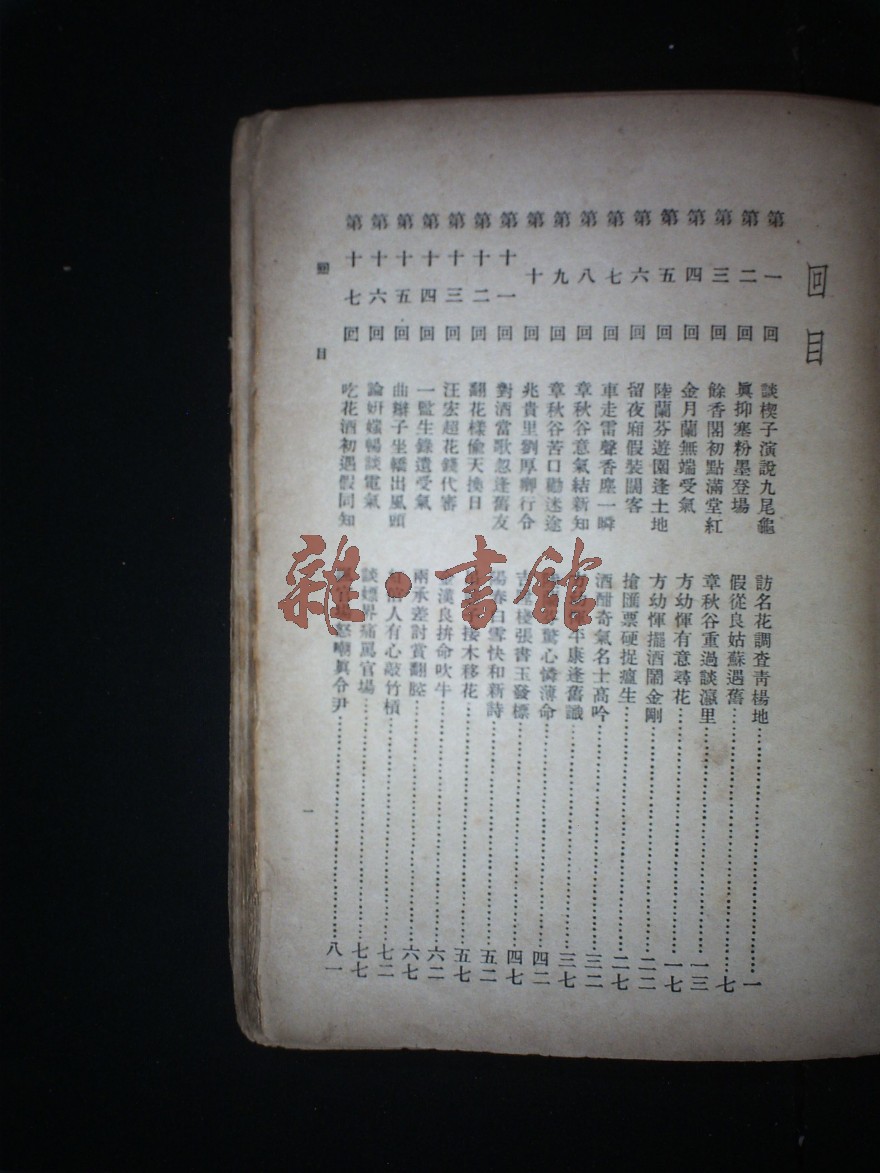 回目
第一回 談楔子演說九尾龜 訪名花調查靑楊地……一
第二回 眞抑塞粉墨登場 假從良姑蘇遇舊……七
第三回 餘香閣初點滿堂紅 章秋谷重過談瀛里……一三
第四回 金月蘭無端受氣 方幼惲有意尋花……一七
第五回 陸蘭芬遊園逢土地 方幼惲擺酒鬧金剛……二二
第六回 留夜廂假裝闊客 搶匯票硬捉瘟生……二七
第七回 車走雷聲香塵一瞬 酒酣奇氣名士高吟……三二
第八回 章秋谷意氣結新知 平康逢舊識……三七
第九回 章秋谷苦口勸迷途 驚心憐薄命……四二
第十回 兆貴里劉厚卿行令 吉陞棧張書玉發標……四七
第十一回 對酒當歌忽逢舊友 陽春白雪快和新詩……五二
第十二回 翻花樣偷天換日 接木移花……五七
第十三回 汪宏超花錢代審 金漢良拚命吹牛……六二
第十四回 一監生錄遺受氣 兩承差討賞翻腔……六七
第十五回 曲辮子坐轎出風頭 紅倌人有心敲竹槓……七二
第十六回 論妍媸暢談電氣 談嫖界痛罵官場……七七
第十七回 吃花酒初遇假同知 官場怒嘲眞令尹……八一
回目 一
雜·書館